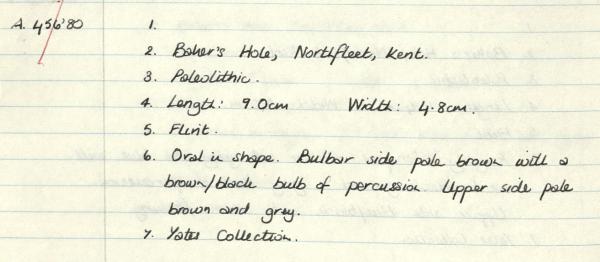 A. 456'80
1.
2. Baker's Hole, Northfleet, Kent.
3. Paleolithic.
4. Length: 9.0cm Width: 4.8cm.
5. Flint.
6. Oval in shape. Bulbar side pale brown with a
brown/black bulb of percussion Upper side pale
brown and grey.
7. Yates Collection.